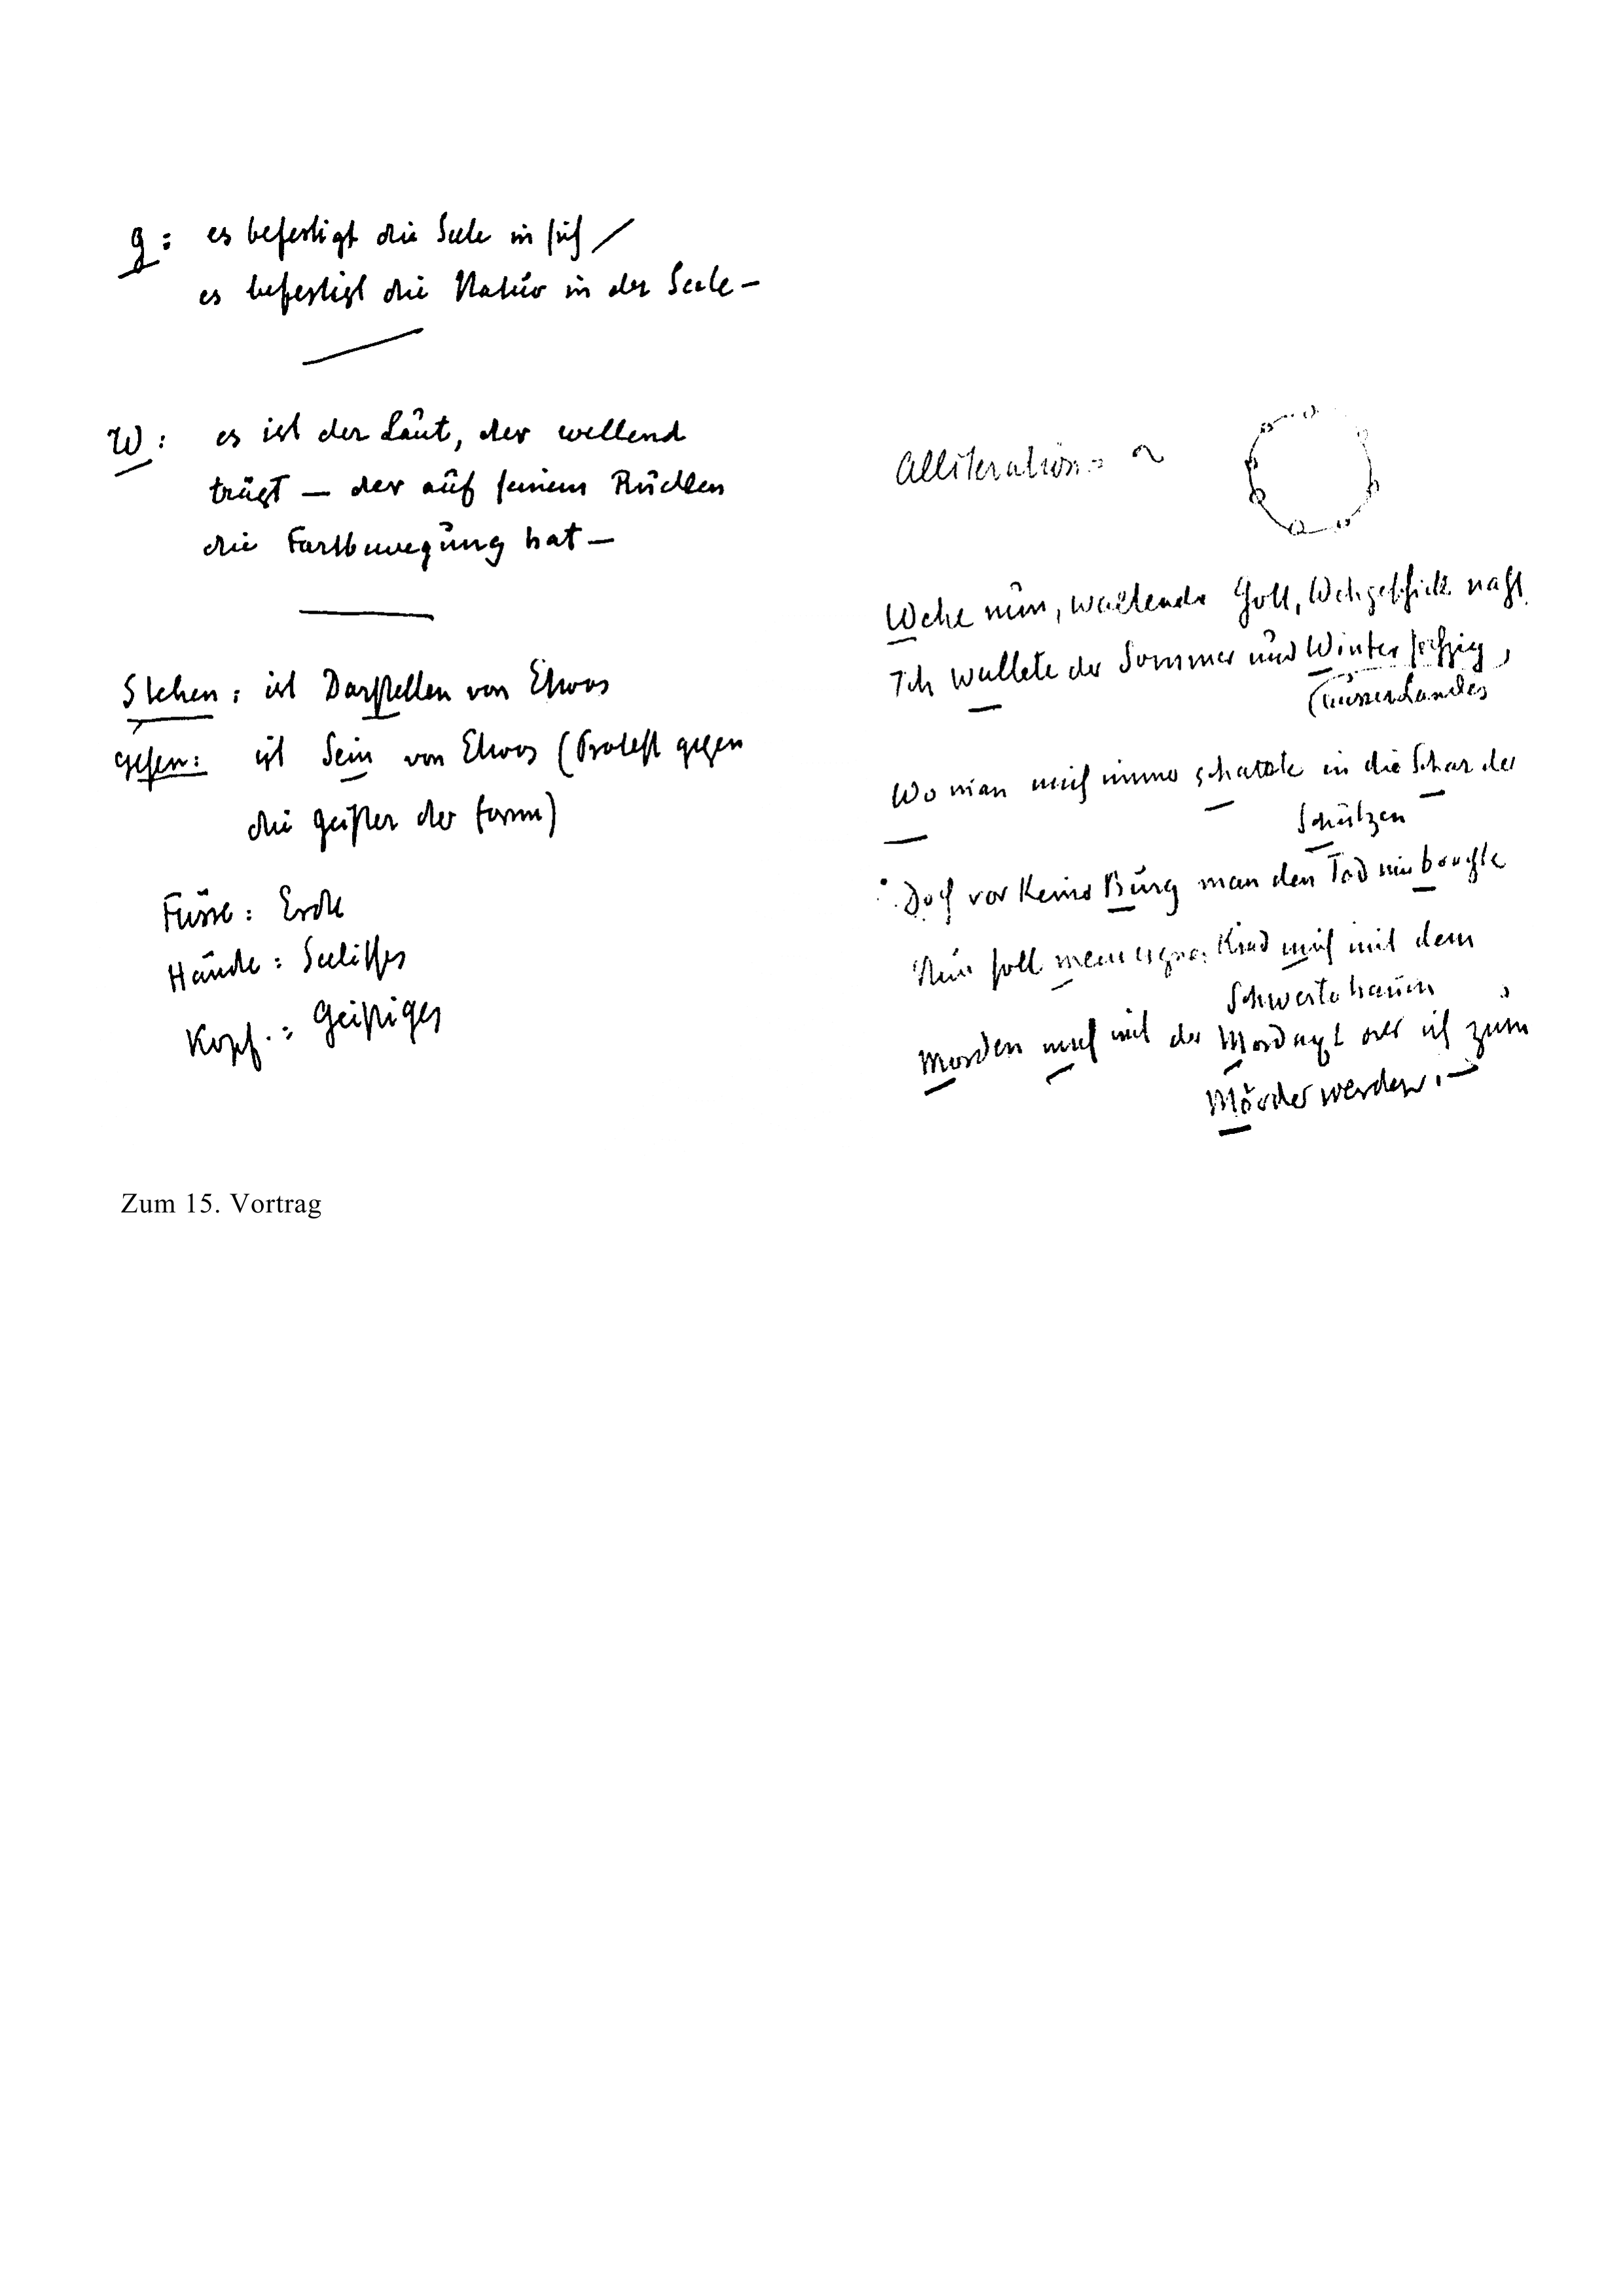 g: es befestigt die Seele in sich /
es befestigt die Natur in der Seele –
W: es ist der Laut, der wellend
trägt – der auf seinem Rücken
die Fortbewegung hat –
Stehen: ist Darstellen von Etwas
gehen: ist Sein von Etwas (Protest gegen
die Geister der Form)
Füsse: Erde
Hände: Seelisches
Kopf: Geistiges
Alliteration: ~
Wehe nun, waltender Gott, Wehgeschick naht
Ich wallete der Sommer und Winter sechzig,
(ausser Landes
Wo man mich immer scharte in die Schar der
Schützen
Doch vor keiner Burg man den Tod mir brachte
Nun soll mein eignes Kind mich mit dem
Schwerte hauen
Morden mich mit der Mordaxt oder ich zum
Mörder werden. –
Zum 15. Vortrag